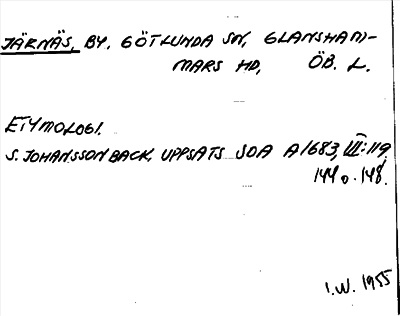 JÄRNÄS, BY. GÖTLUNDA SN, GLANSHAM-
MARS HD, ÖB. L.
ETYMOLOGI.
S. JOHANSSON BACK. UPPSATS SOA A1683, III:119,
144 o. 148.
I.W. 1955